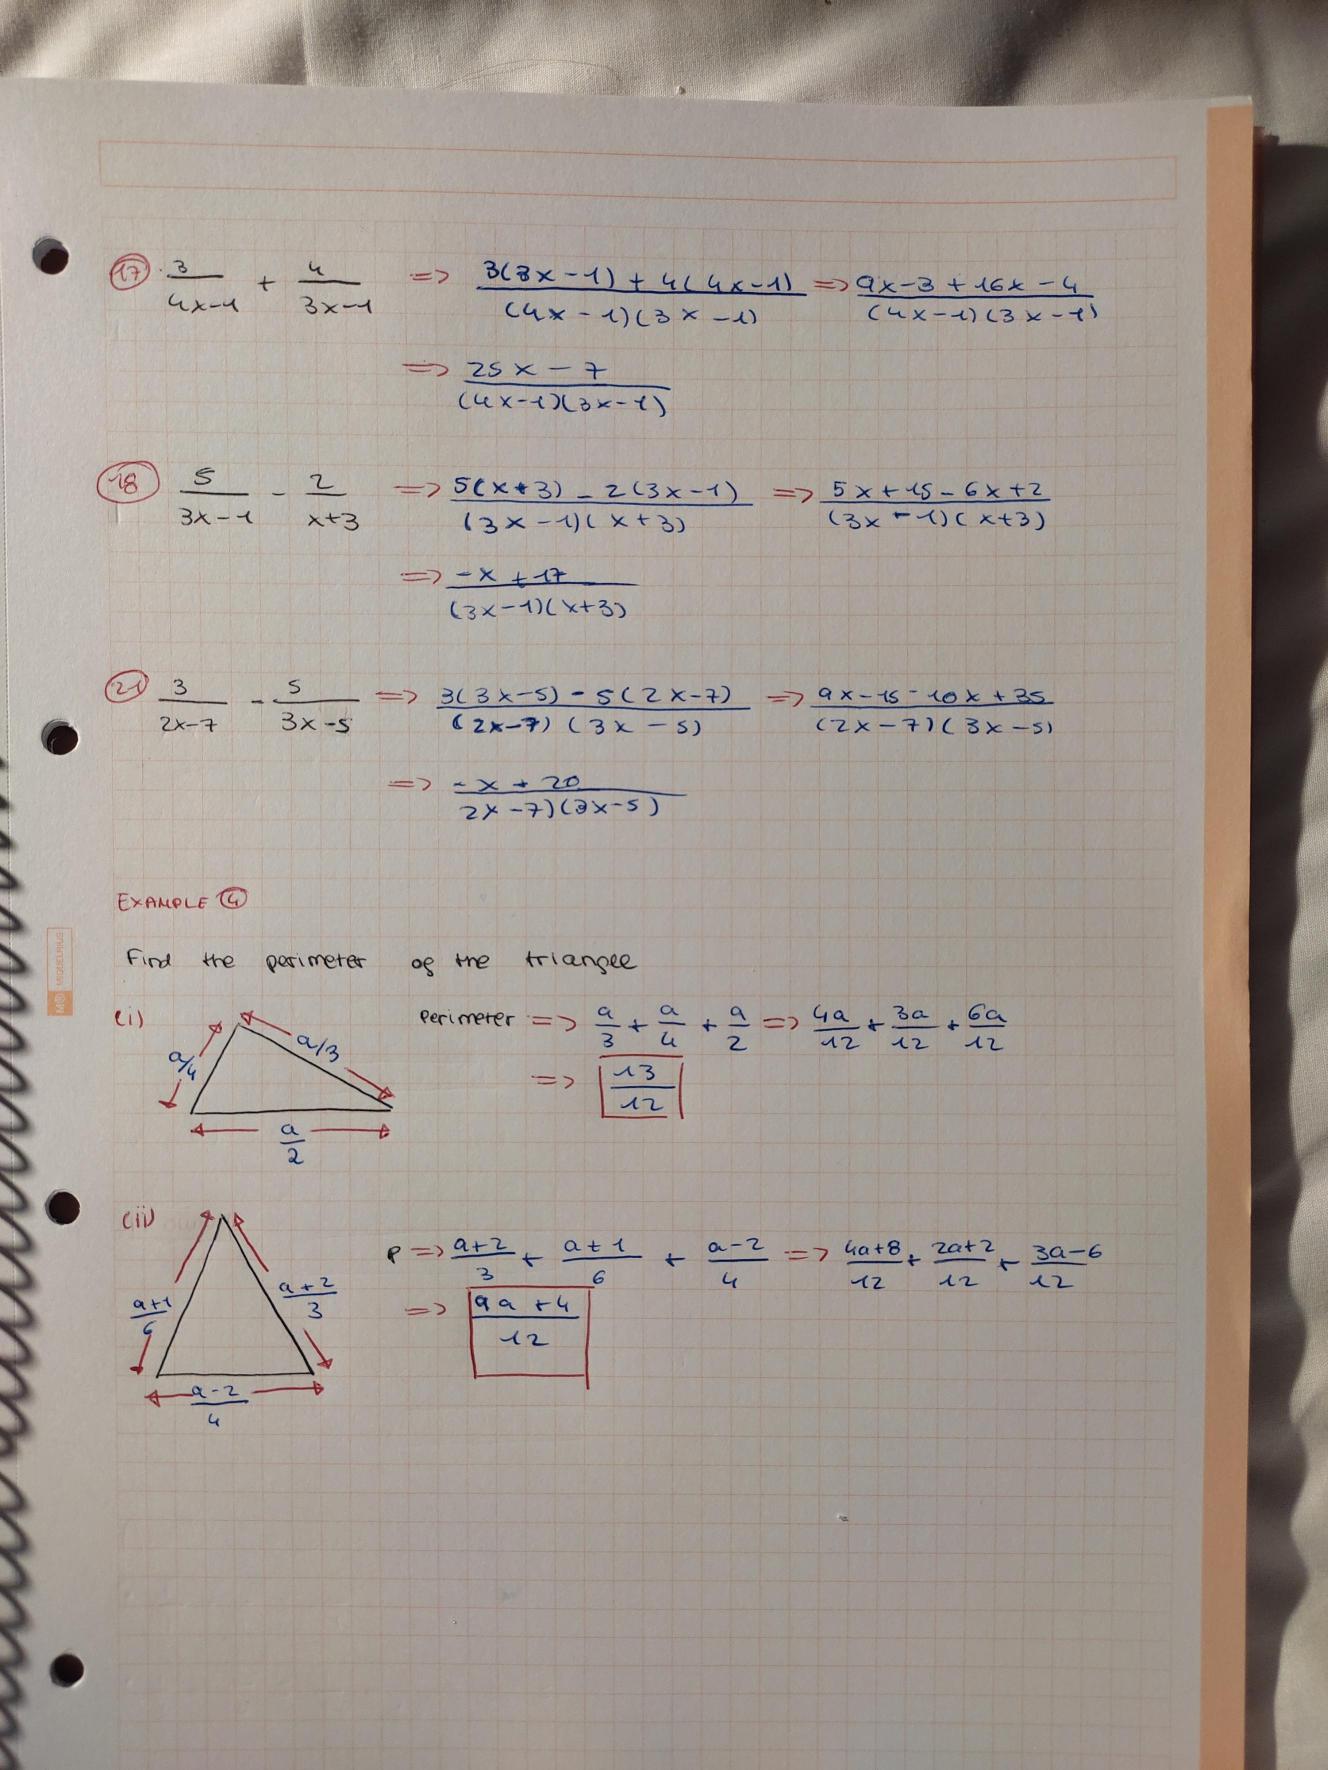 17 3/(4x-1) + 4/(3x-1) => (3(3x-1) + 4(4x-1))/((4x-1)(3x-1)) => (9x-3+16x-4)/((4x-1)(3x-1))
=> (25x-7)/((4x-1)(3x-1))
18 5/(3x-1) - 2/(x+3) => (5(x+3) - 2(3x-1))/((3x-1)(x+3)) => (5x+15-6x+2)/((3x-1)(x+3))
=> (-x+17)/((3x-1)(x+3))
21 3/(2x-7) - 5/(3x-5) => (3(3x-5) - 5(2x-7))/((2x-7)(3x-5)) => (9x-15-10x+35)/((2x-7)(3x-5))
=> (-x+20)/(2x-7)(3x-5)
EXAMPLE 4
MIQUELRIUS
Find the perimeter of the triangle
(i) perimeter => a/3 + a/4 + a/2 => 4a/12 + 3a/12 + 6a/12
a/4 a/3
=> 13/12
a/2
(ii) P => (a+2)/3 + (a+1)/6 + (a-2)/4 => (4a+8)/12 + (2a+2)/12 + (3a-6)/12
(a+1)/6 (a+2)/3 => (9a+4)/12
(a-2)/4